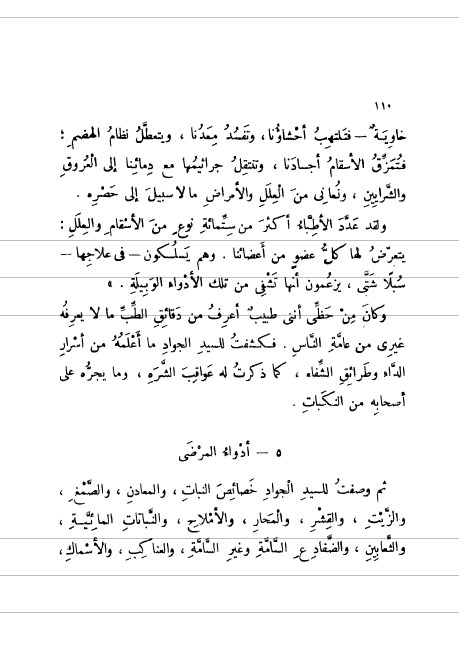 ١١٠
خاوِيَةٌ — فتَلتهِبُ أحْشاؤُنا، وتَفسُدُ مِعَدُنا، ويتعطَّلُ نظامُ الهضمِ؛
فتُمَزِّقُ الأسقامُ أجسادَنا، وتنتقِلُ جراثيمُها مع دِمائِنا إلى الْعُروقِ
والشَّرايينِ، ونُعانِى منَ الْعِلَلِ والأمراضِ ما لا سبيلَ إلى حَصْرِه.
ولقد عَدَّدَ الأطِبَّاءُ أكثرَ من سِتِّمائةِ نوعٍ منَ الأسْقامِ والعِلَلِ:
يتعرّضُ لها كلُّ عضوٍ من أعضائنا. وهم يَسلُكون — فى علاجِها —
سُبلًا شَتَّى، يزعُمون أنها تَشْفِى من تلك الأدْواءِ الوَبِيلَةِ.»
وكانَ مِنْ حَظِّى أننى طبيبٌ أعرِفُ من دَقائِقِ الطِّبِّ ما لا يعرِفُه
غيرِى من عامَّةِ النَّاسِ. فكشفتُ للسيدِ الجوادِ ما أعْلَمُهُ من أسْرارِ
الدَّاءِ وطَرائقِ الشِّفاءِ، كما ذكرتُ له عَواقِبَ الشَّرَهِ، وما يجرُّه على
أصحابِه من النكَباتِ.
٥ — أدْواءُ المرْضَى
ثم وصفتُ للسيدِ الجوادِ خَصائِصَ النباتِ، والمعادنِ، والصَّمْغِ،
والزَّيْتِ، والقِشْرِ، والْمَحارِ، والأمْلاحِ، والنَّباتاتِ المائِيَّةِ،
والثَّعابينِ، والضَّفادعِ السَّامَّةِ وغيرِ السَّامَّةِ، والعناكِبِ، والأسْماكِ،